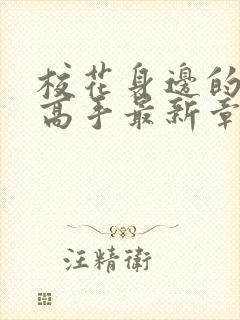 校花身邊的
高手最新章
汪精衛